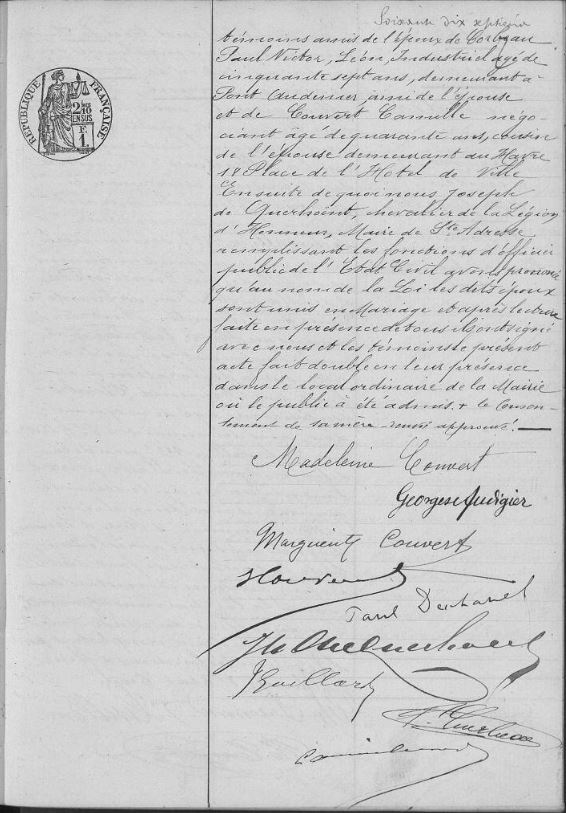 Soixante dix septième
témoins amis de l'époux de
Paul Victor, Léon, Industriel âgé de
cinquante sept ans, demeurant à
Pont Audemer, ami de l'épouse
et de Couvert Camille négo-
ciant âgé de quarante ans, cousin
de l'épouse demeurant au Havre
18 Place de l'Hotel de Ville
Ensuite de quoi nous Joseph
de Querhoënt, chevalier de la Légion
d'Honneur, Maire de Ste Adresse
remplissant les fonctions d'officier
public de l'Etat Civil avons prononcé
qu'au nom de la Loi les dits époux
sont unis en Mariage et après lecture
faite en présence de tous ils ont signé
avec nous et les témoins le présent
acte fait double en leur présence
dans le local ordinaire de la Mairie
où le public à été admis. + le consen-
tement de sa mère - renvoi approuvé.
RÉPUBLIQUE FRANÇAISE
2/10 EN SUS
F.
1.
Madeleine Couvert
Georges Audigier
Marguerite Couvert
Paul Deschanel